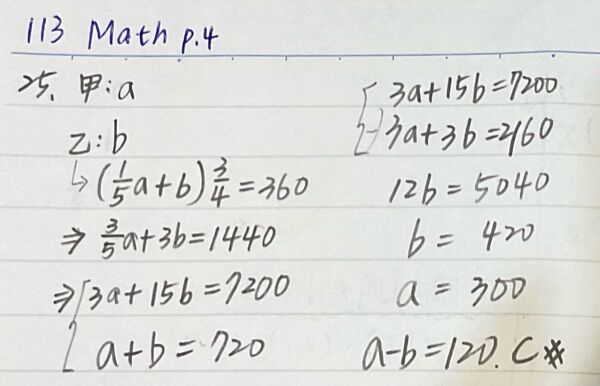 113 Math p.4
25. 甲:a
乙:b
↳(1/5a+b)3/4=360
⇒ 3/5a+3b=1440
⇒{3a+15b=7200
a+b=720
{3a+15b=7200
-)3a+3b=2160
12b=5040
b=420
a=300
a-b=120. C※